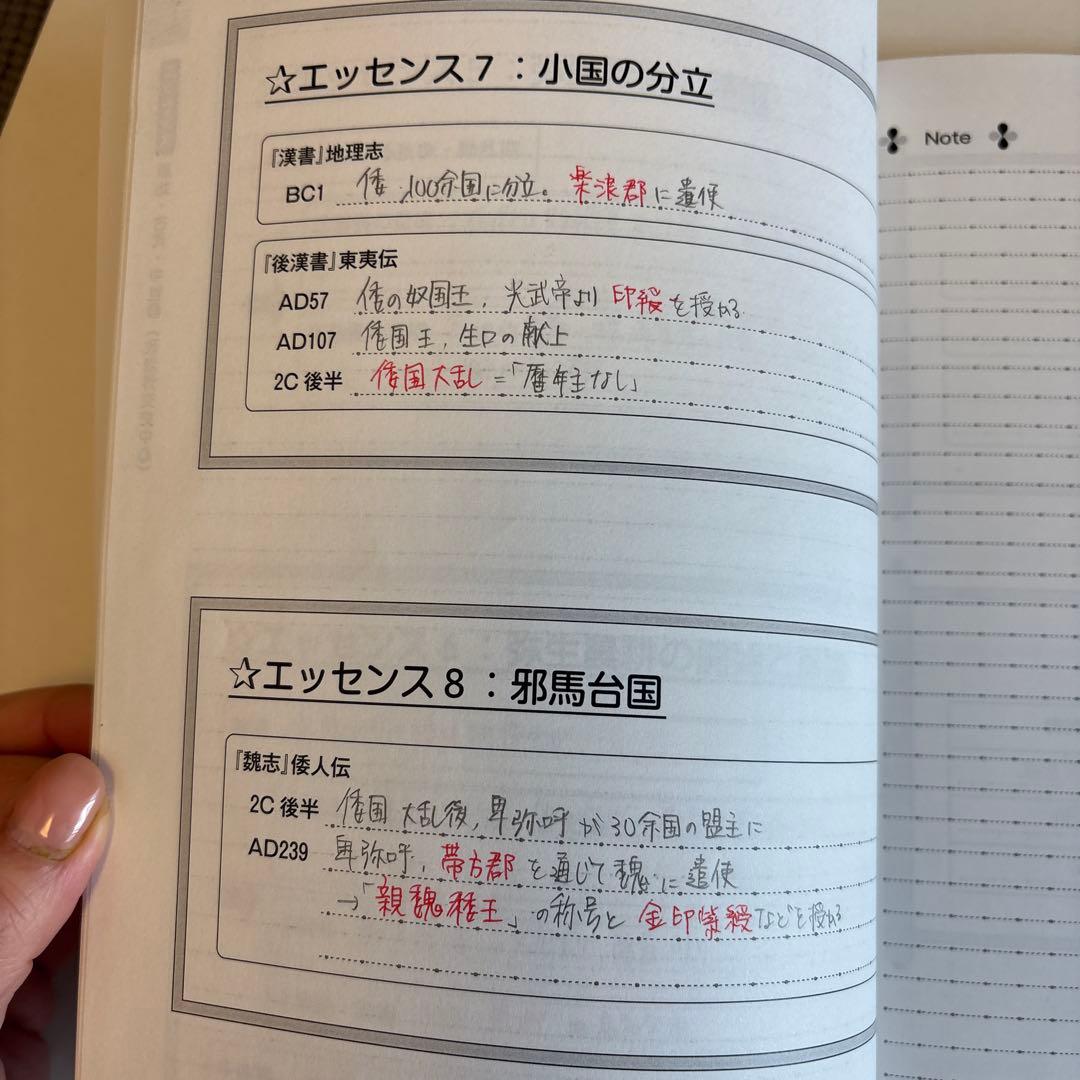 ☆エッセンス7：小国の分立
『漢書』地理志
BC1 倭、100余国に分立。楽浪郡に遣使
『後漢書』東夷伝
AD57 倭の奴国王、光武帝より印綬を授かる
AD107 倭国王、生口の献上
2C後半 倭国大乱=「暦年主なし」
☆エッセンス8：邪馬台国
『魏志』倭人伝
2C後半 倭国大乱後、卑弥呼が30余国の盟主に
AD239 卑弥呼、帯方郡を通じて魏に遣使
→「親魏倭王」の称号と金印紫綬などを授かる
Note